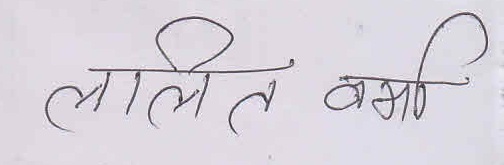 ललित वर्मा